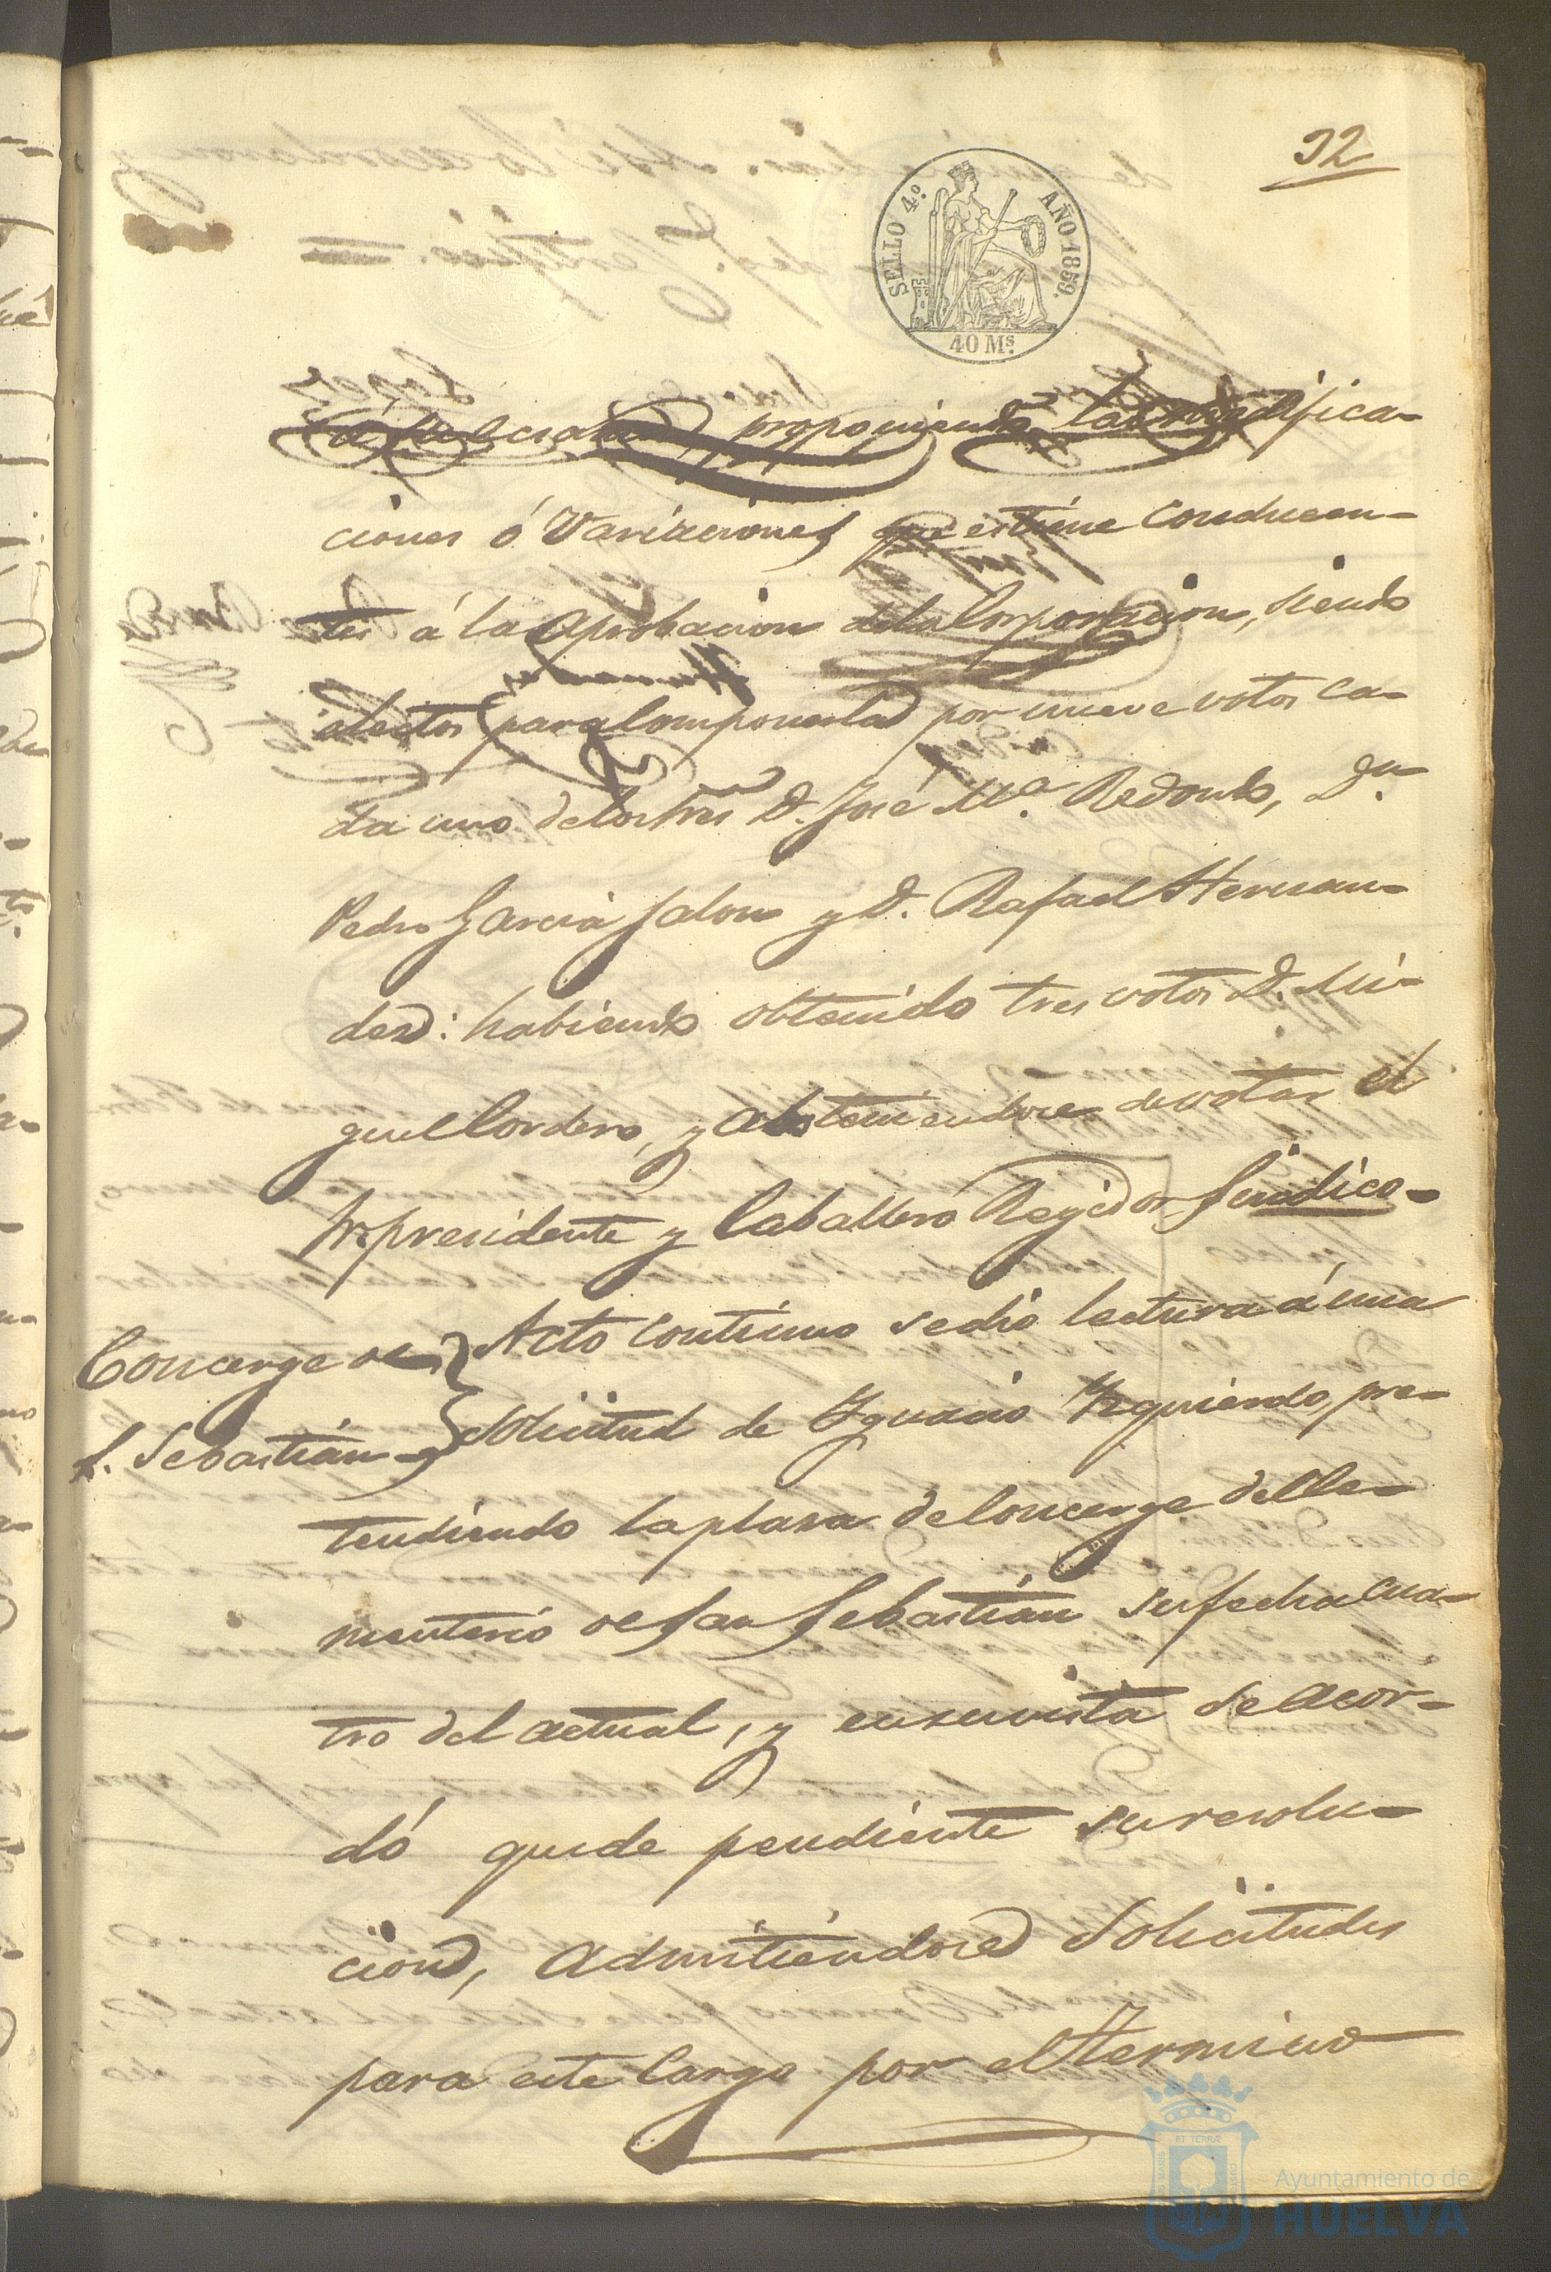 32
SELLO 4.º AÑO 1859.
40 Ms.
proponiendo las modifica-
ciones ó variaciones que estime conducen-
tes á la aprobacion de la Corporacion, siendo
electos para componerla por nueve votos ca-
da uno de los tres D. José Mª. Redondo, Dn.
Pedro Garcia Jalon y D. Rafael Hernan-
dez: habiendo obtenido tres votos D. Mi-
guel Cordero, y absteniendose de votar el
Sr. presidente y Caballero Regidor Sindico-
Concerge de
S. Sebastián
Acto continuo se dio lectura á una
solicitud de Ygnacio Yzquierdo, pre-
tendiendo la plaza de Concerge del Ce-
menterio de San Sebastián su fecha cua-
tro del actual, y en su vista se acor-
dó quede pendiente su resolu-
cion, admitiendose solicitudes
para este Cargo por el termino
Ayuntamiento de
HUELVA